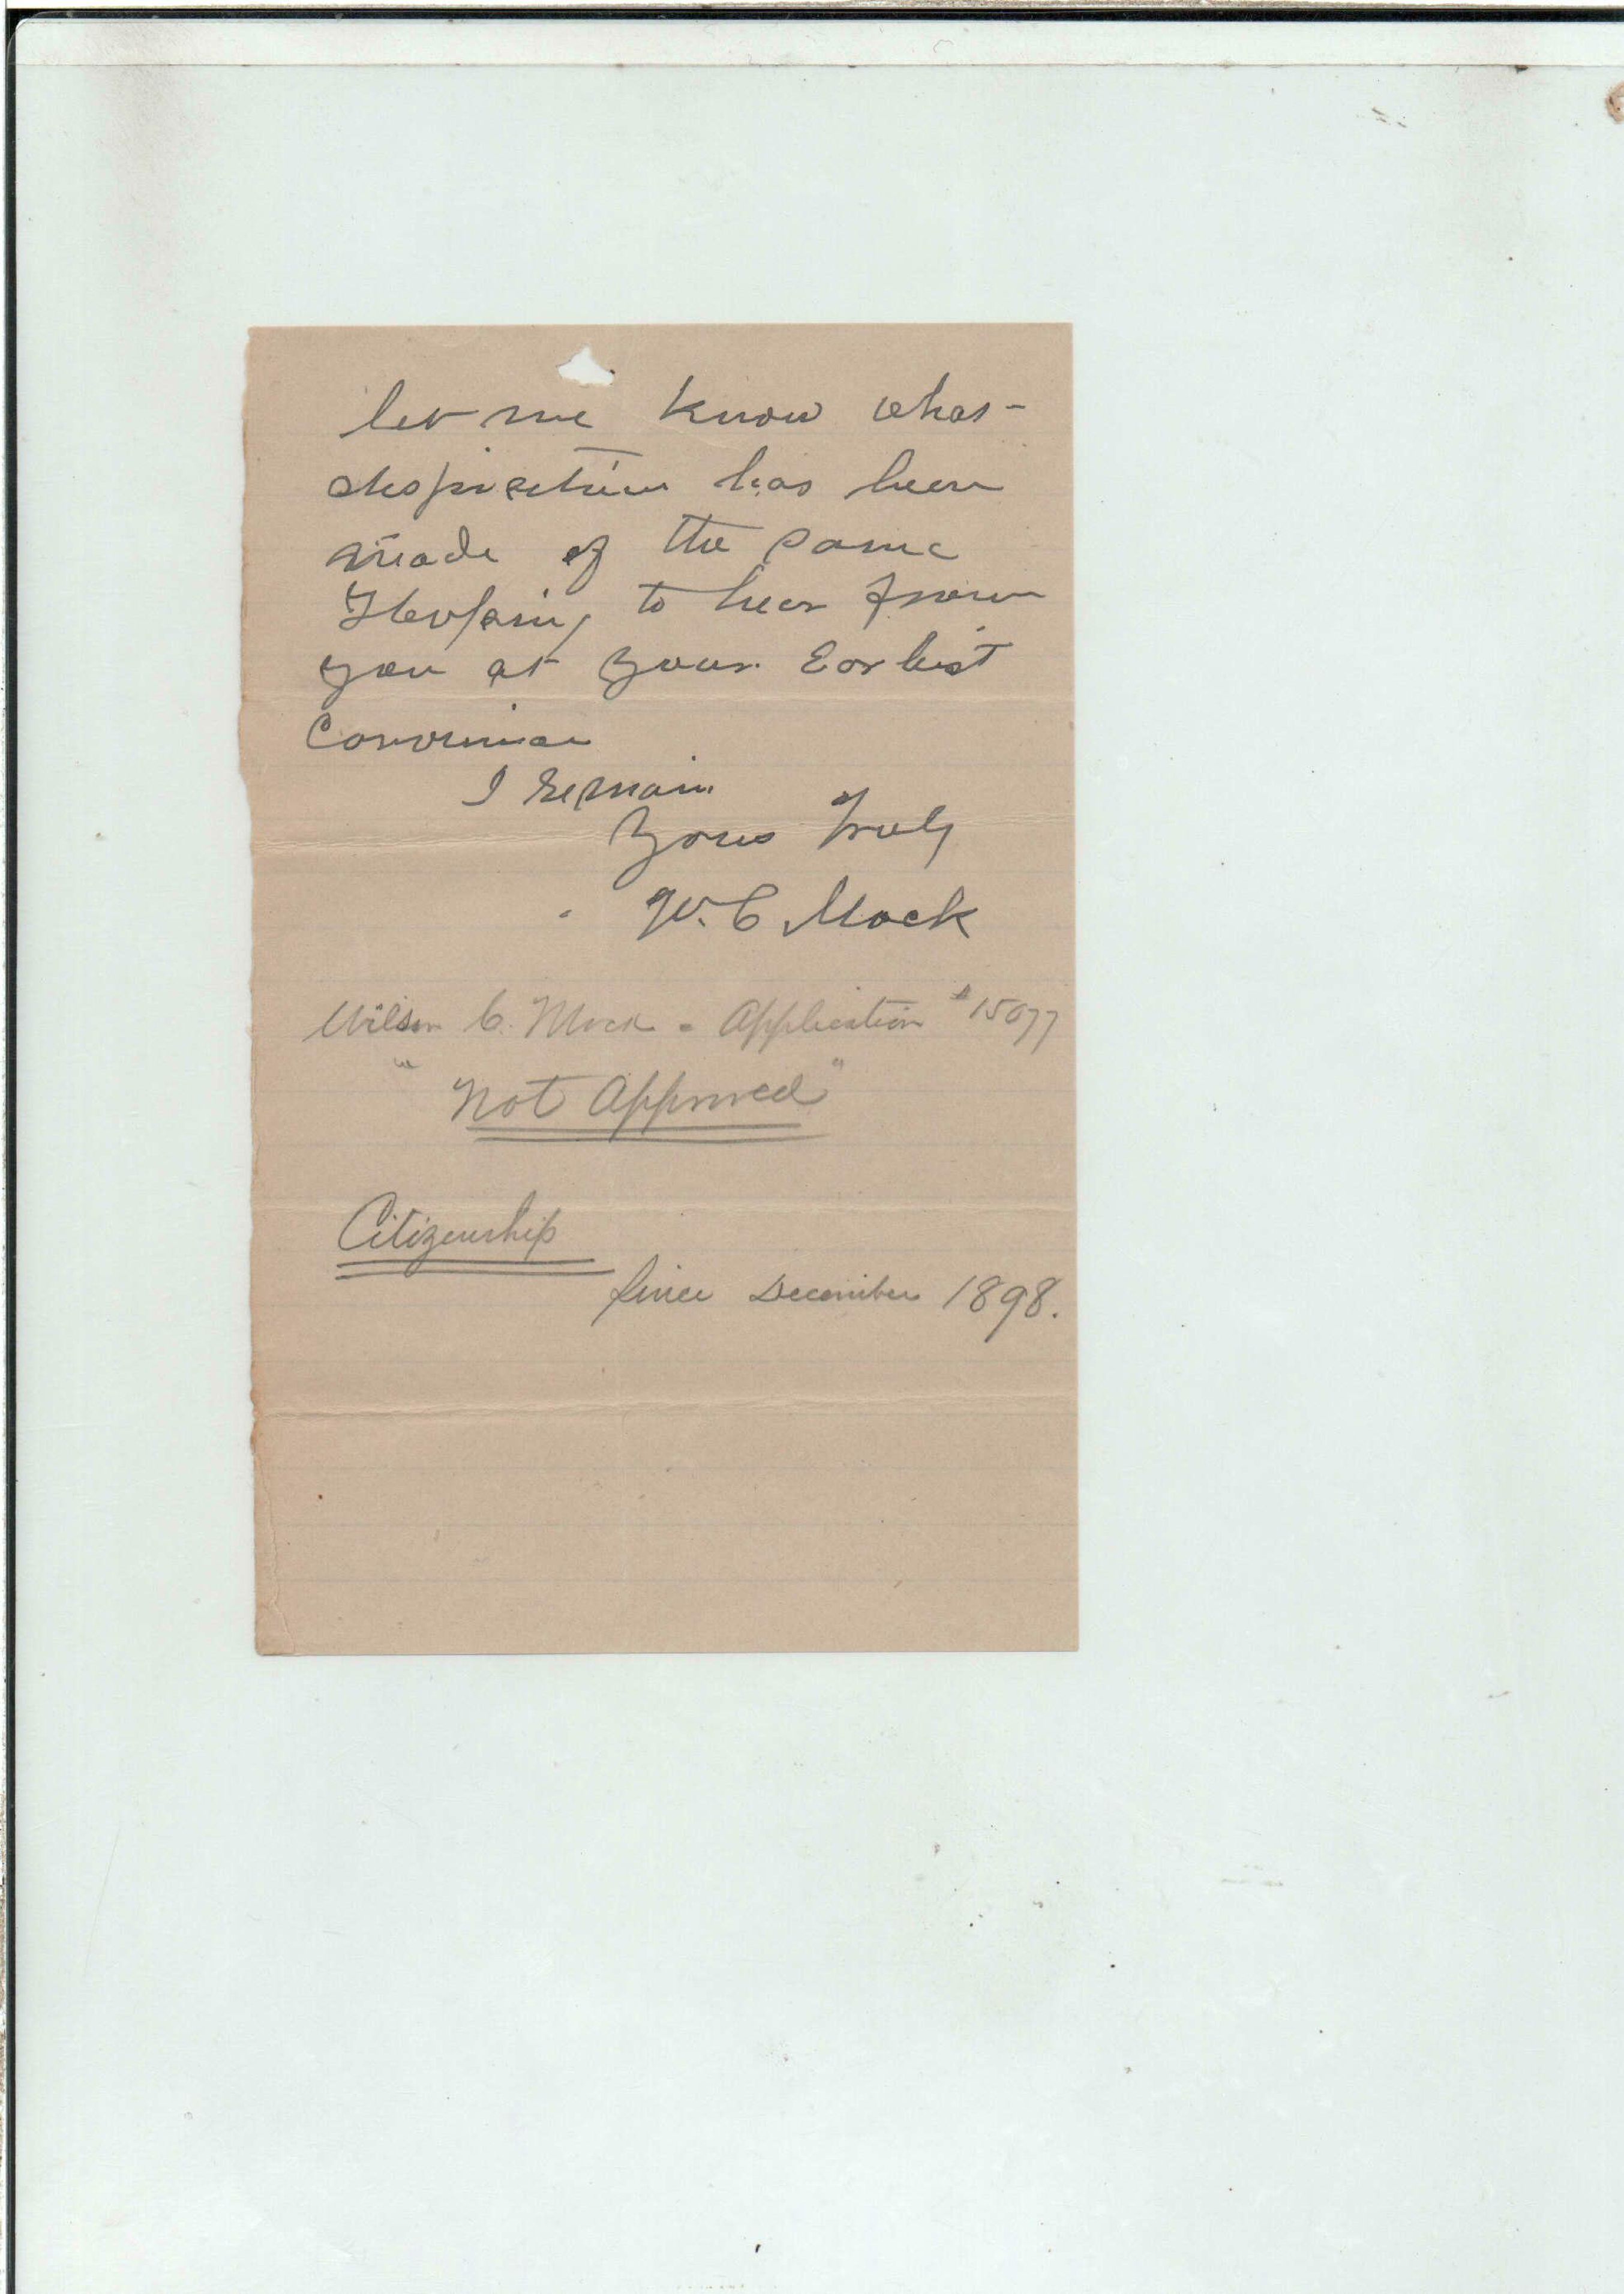 let me know what
disposition has been
made of the same
Hopeing to hear from
you at your Earliest
I Remain
Yours Truly
W. C Mock
Wilson C. Mock - Application #15077
"Not Approved"
Citizenship
Since December 1898.